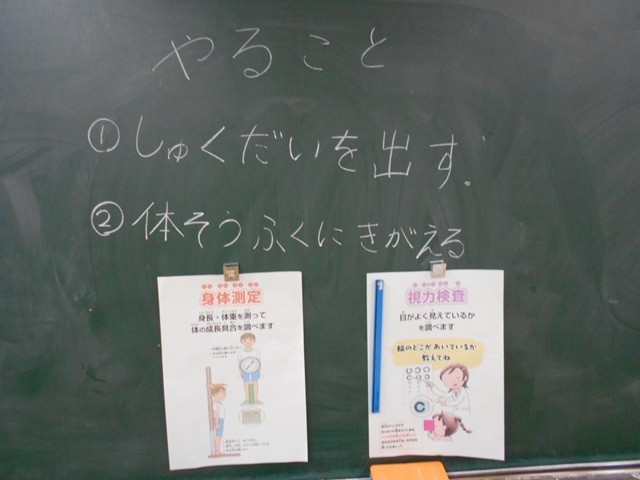 やること
①しゅくだいを出す。
②体そうふくにきがえる
身体測定
身長・体重を測って
体の成長具合を調べます
視力検査
目がよく見えているか
を調べます
輪のどこがあいているか
教えてね